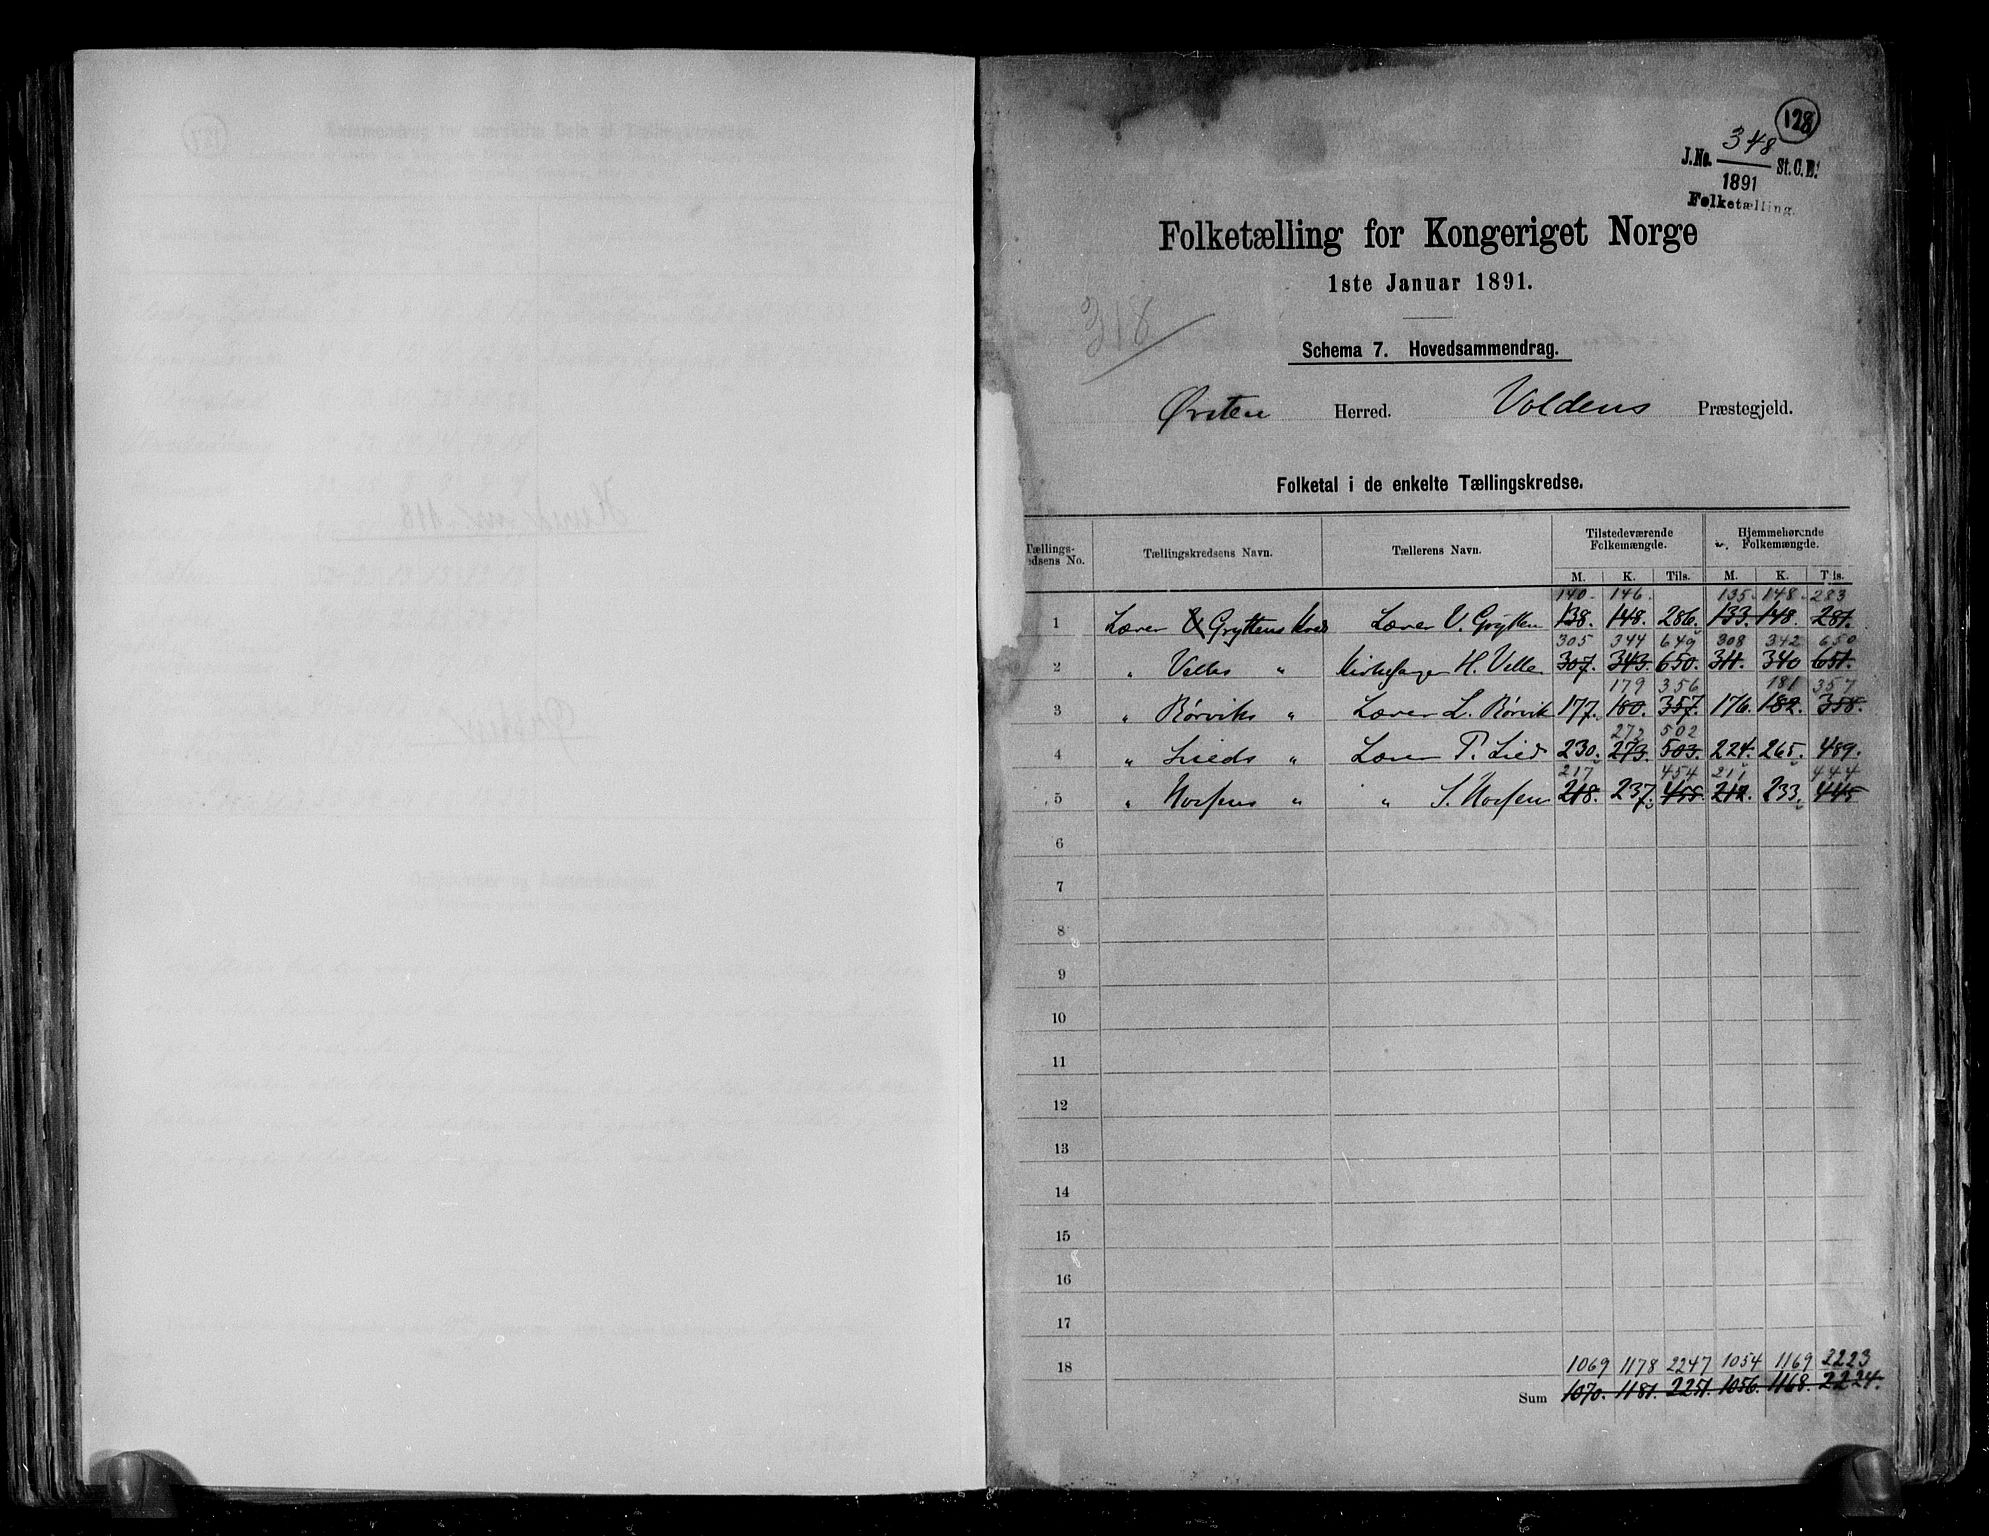 128
J.No. 348 St. C. B.
1891
Folketælling.
Folketælling for Kongeriget Norge
1ste Januar 1891.
318
Schema 7. Hovedsammendrag.
Ørsten Herred. Voldens Præstegjeld.
Folketal i de enkelte Tællingskredse.
Tællings- Tællingskredsens Navn. Tællerens Navn. Tilstedeværende Hjemmehørende
dsens No. Folkemængde. Folkemængde.
M. K. Tils. M. K. Tils.
140. 146. 135. 148. 283
1 Lærer Gryttens Kreds Lærer V. Grytten 138. 148. 286. 133. 148. 281.
305 344 649 308 342 650
2 " Velles " Kirkesanger H. Velle 307. 343. 650. 311. 340 651.
179 356 181 357
3 " Rørviks " Lærer L. Rørvik 177. 180. 357. 176. 182. 358.
272 502
4 " Lieds " Lærer P. Lied 230. 273. 503. 224. 265. 489.
217 454 211 444
5 " " " S. 218. 237. 455. 212. 233. 445
6
7
8
9
10
11
12
13
14
15
16
17
18 1069 1178 2247 1054 1169 2223
Sum 1070. 1181. 2251. 1056. 1168. 2224.